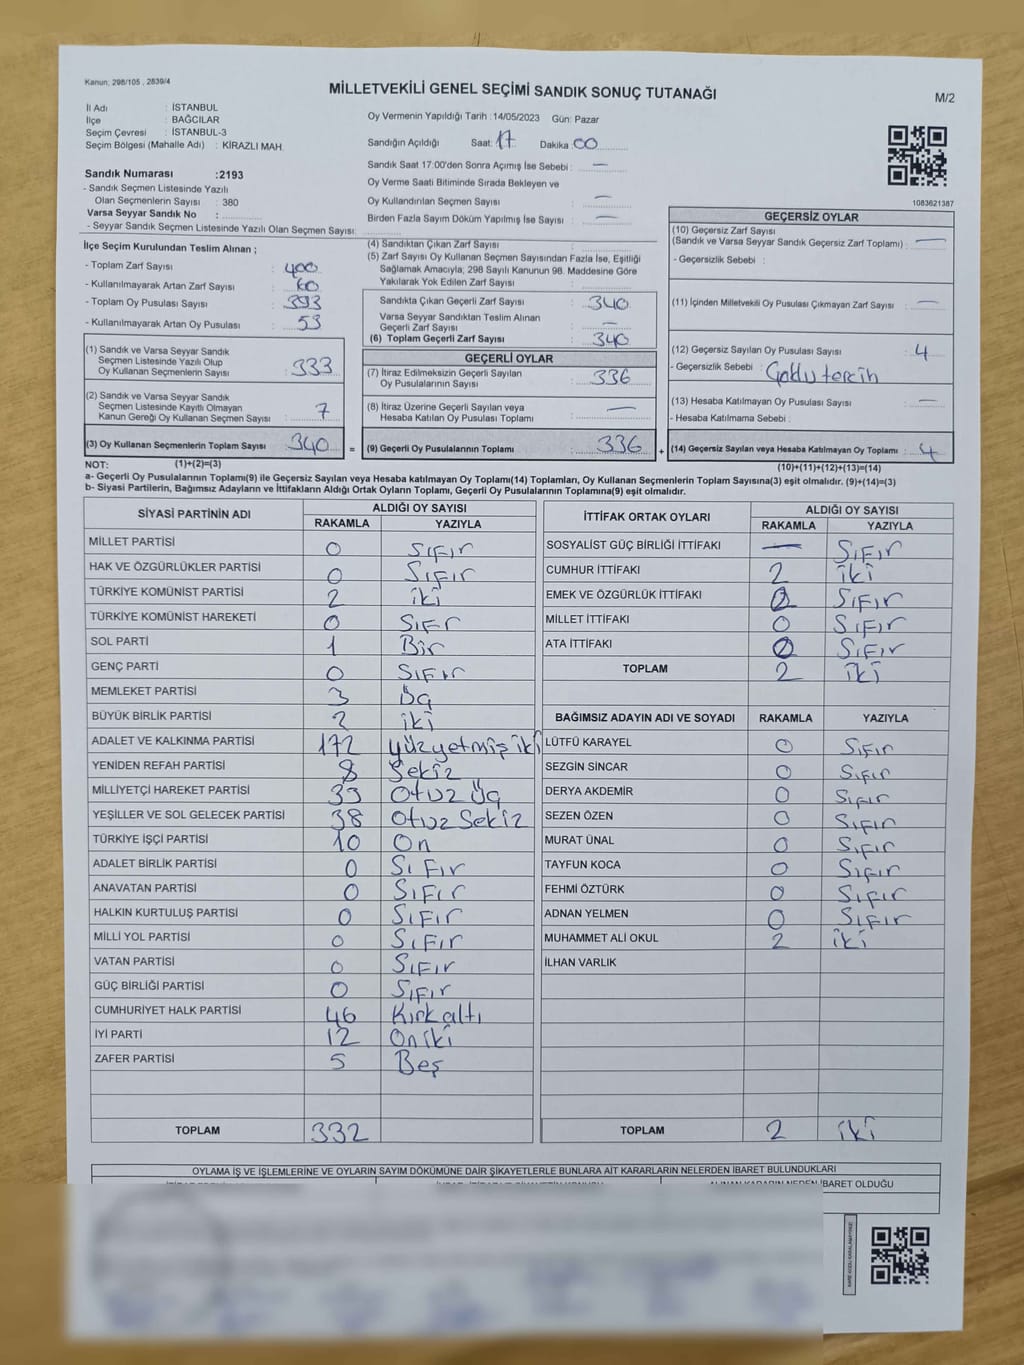 Kanun: 298/105 , 2839/4
MİLLETVEKİLİ GENEL SEÇİMİ SANDIK SONUÇ TUTANAĞI
M/2
İl Adı : İSTANBUL
İlçe : BAĞCILAR
Seçim Çevresi : İSTANBUL-3
Seçim Bölgesi (Mahalle Adı) : KİRAZLI MAH.
Oy Vermenin Yapıldığı Tarih : 14/05/2023 Gün: Pazar
Sandığın Açıldığı Saat: 17 Dakika: 00
Sandık Saat 17:00'den Sonra Açımış İse Sebebi : —
Oy Verme Saati Bitiminde Sırada Bekleyen ve
Oy Kullandırılan Seçmen Sayısı : —
Birden Fazla Sayım Döküm Yapılmış İse Sayısı : —
1083621387
Sandık Numarası :2193
- Sandık Seçmen Listesinde Yazılı
Olan Seçmenlerin Sayısı : 380
Varsa Seyyar Sandık No :
- Seyyar Sandık Seçmen Listesinde Yazılı Olan Seçmen Sayısı:
İlçe Seçim Kurulundan Teslim Alınan ;
- Toplam Zarf Sayısı : 400
- Kullanılmayarak Artan Zarf Sayısı : 60
- Toplam Oy Pusulası Sayısı : 393
- Kullanılmayarak Artan Oy Pusulası : 53
(1) Sandık ve Varsa Seyyar Sandık
Seçmen Listesinde Yazılı Olup
Oy Kullanan Seçmenlerin Sayısı : 333
(2) Sandık ve Varsa Seyyar Sandık
Seçmen Listesinde Kayıtlı Olmayan
Kanun Gereği Oy Kullanan Seçmen Sayısı : 7
(3) Oy Kullanan Seçmenlerin Toplam Sayısı : 340
(4) Sandıktan Çıkan Zarf Sayısı :
(5) Zarf Sayısı Oy Kullanan Seçmen Sayısından Fazla İse, Eşitliği
Sağlamak Amacıyla, 298 Sayılı Kanunun 98. Maddesine Göre
Yakılarak Yok Edilen Zarf Sayısı :
Sandıkta Çıkan Geçerli Zarf Sayısı : 340
Varsa Seyyar Sandıktan Teslim Alınan
Geçerli Zarf Sayısı : —
(6) Toplam Geçerli Zarf Sayısı : 340
GEÇERLİ OYLAR
(7) İtiraz Edilmeksizin Geçerli Sayılan
Oy Pusulalarının Sayısı : 336
(8) İtiraz Üzerine Geçerli Sayılan veya
Hesaba Katılan Oy Pusulası Toplamı : —
= (9) Geçerli Oy Pusulalarının Toplamı : 336
GEÇERSİZ OYLAR
(10) Geçersiz Zarf Sayısı
(Sandık ve Varsa Seyyar Sandık Geçersiz Zarf Toplamı) : —
- Geçersizlik Sebebi :
(11) İçinden Milletvekili Oy Pusulası Çıkmayan Zarf Sayısı : —
(12) Geçersiz Sayılan Oy Pusulası Sayısı : 4
- Geçersizlik Sebebi : Çoklu tercih
(13) Hesaba Katılmayan Oy Pusulası Sayısı : —
- Hesaba Katılmama Sebebi :
+ (14) Geçersiz Sayılan veya Hesaba Katılmayan Oy Toplamı : 4
NOT: (1)+(2)=(3)
(10)+(11)+(12)+(13)=(14)
a- Geçerli Oy Pusulalarının Toplamı(9) ile Geçersiz Sayılan veya Hesaba katılmayan Oy Toplamı(14) Toplamları, Oy Kullanan Seçmenlerin Toplam Sayısına(3) eşit olmalıdır. (9)+(14)=(3)
b- Siyasi Partilerin, Bağımsız Adayların ve İttifakların Aldığı Ortak Oyların Toplamı, Geçerli Oy Pusulalarının Toplamına(9) eşit olmalıdır.
SİYASİ PARTİNİN ADI ALDIĞI OY SAYISI
RAKAMLA YAZIYLA
MİLLET PARTİSİ 0 Sıfır
HAK VE ÖZGÜRLÜKLER PARTİSİ 0 Sıfır
TÜRKİYE KOMÜNİST PARTİSİ 2 iki
TÜRKİYE KOMÜNİST HAREKETİ 0 Sıfr
SOL PARTİ 1 Bir
GENÇ PARTİ 0 Sıfır
MEMLEKET PARTİSİ 3 Üç
BÜYÜK BİRLİK PARTİSİ 2 iki
ADALET VE KALKINMA PARTİSİ 172 Yüzyetmiş iki
YENİDEN REFAH PARTİSİ 8 Sekiz
MİLLİYETÇİ HAREKET PARTİSİ 33 Otuz Üç
YEŞİLLER VE SOL GELECEK PARTİSİ 38 Otuz Sekiz
TÜRKİYE İŞÇİ PARTİSİ 10 On
ADALET BİRLİK PARTİSİ 0 Sıfır
ANAVATAN PARTİSİ 0 Sıfır
HALKIN KURTULUŞ PARTİSİ 0 Sıfır
MİLLİ YOL PARTİSİ 0 Sıfır
VATAN PARTİSİ 0 Sıfır
GÜÇ BİRLİĞİ PARTİSİ 0 Sıfır
CUMHURİYET HALK PARTİSİ 46 Kırk altı
İYİ PARTİ 12 On iki
ZAFER PARTİSİ 5 Beş
TOPLAM 332
İTTİFAK ORTAK OYLARI ALDIĞI OY SAYISI
RAKAMLA YAZIYLA
SOSYALİST GÜÇ BİRLİĞİ İTTİFAKI — Sıfır
CUMHUR İTTİFAKI 2 iki
EMEK VE ÖZGÜRLÜK İTTİFAKI Sıfır
MİLLET İTTİFAKI 0 Sıfır
ATA İTTİFAKI 0 Sıfır
TOPLAM 2 İki
BAĞIMSIZ ADAYIN ADI VE SOYADI RAKAMLA YAZIYLA
LÜTFÜ KARAYEL 0 Sıfır
SEZGİN SİNCAR 0 Sıfır
DERYA AKDEMİR 0 Sıfır
SEZEN ÖZEN 0 Sıfır
MURAT ÜNAL 0 Sıfır
TAYFUN KOCA 0 Sıfır
FEHMİ ÖZTÜRK 0 Sıfır
ADNAN YELMEN 0 Sıfır
MUHAMMET ALİ OKUL 2 iki
İLHAN VARLIK
TOPLAM 2 iki
OYLAMA İŞ VE İŞLEMLERİNE VE OYLARIN SAYIM DÖKÜMÜNE DAİR ŞİKAYETLERLE BUNLARA AİT KARARLARIN NELERDEN İBARET BULUNDUKLARI
İBARET OLDUĞU